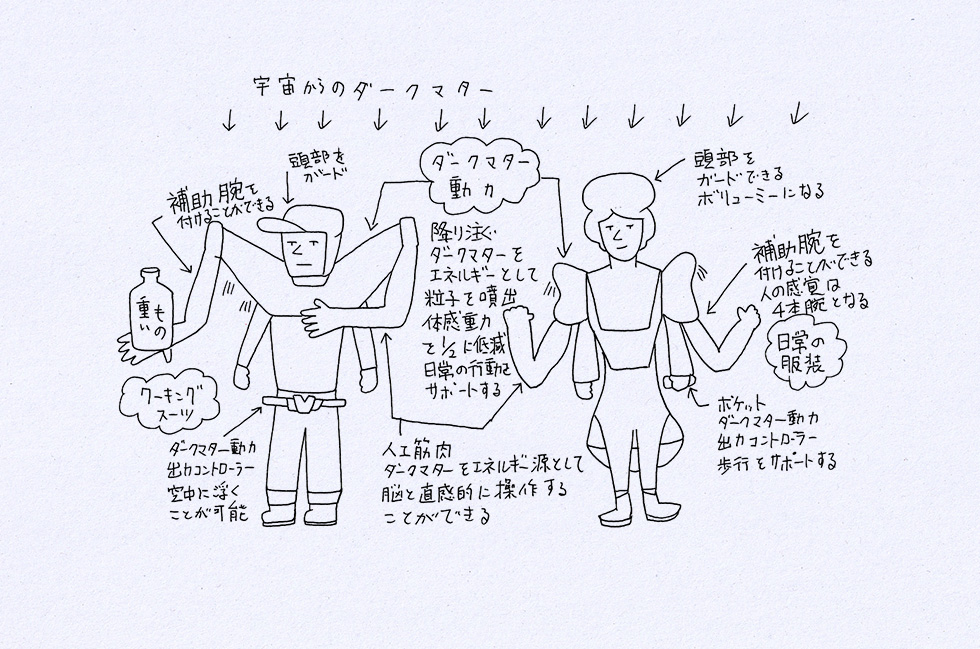 宇宙からのダークマター
頭部を
ガード
補助腕を
付けることができる
重い
もの
ワーキング
スーツ
ダークマター動力
出力コントローラー
空中に浮く
ことが可能
ダークマター
動力
降り注ぐ
ダークマターを
エネルギーとして
粒子を噴出
体感重力
を1/2に低減
日常の行動を
サポートする
人工筋肉
ダークマターをエネルギー源として
脳と直感的に操作する
ことができる
頭部を
ガードできる
ボリューミーになる
補助腕を
付けることができる
人の感覚は
4本腕となる
日常の
服装
ポケット
ダークマター動力
出力コントローラー
歩行をサポートする